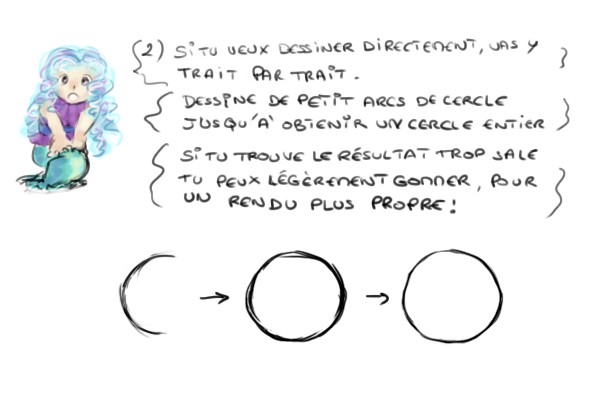 (2) SI TU VEUX DESSINER DIRECTEMENT, VAS Y
TRAIT PAR TRAIT.
DESSINE DE PETIT ARCS DE CERCLE
JUSQU'A' OBTENIR UN CERCLE ENTIER
SI TU TROUVE LE RÉSULTAT TROP SALE
TU PEUX LÉGÈREMENT GOMMER, POUR
UN RENDU PLUS PROPRE!